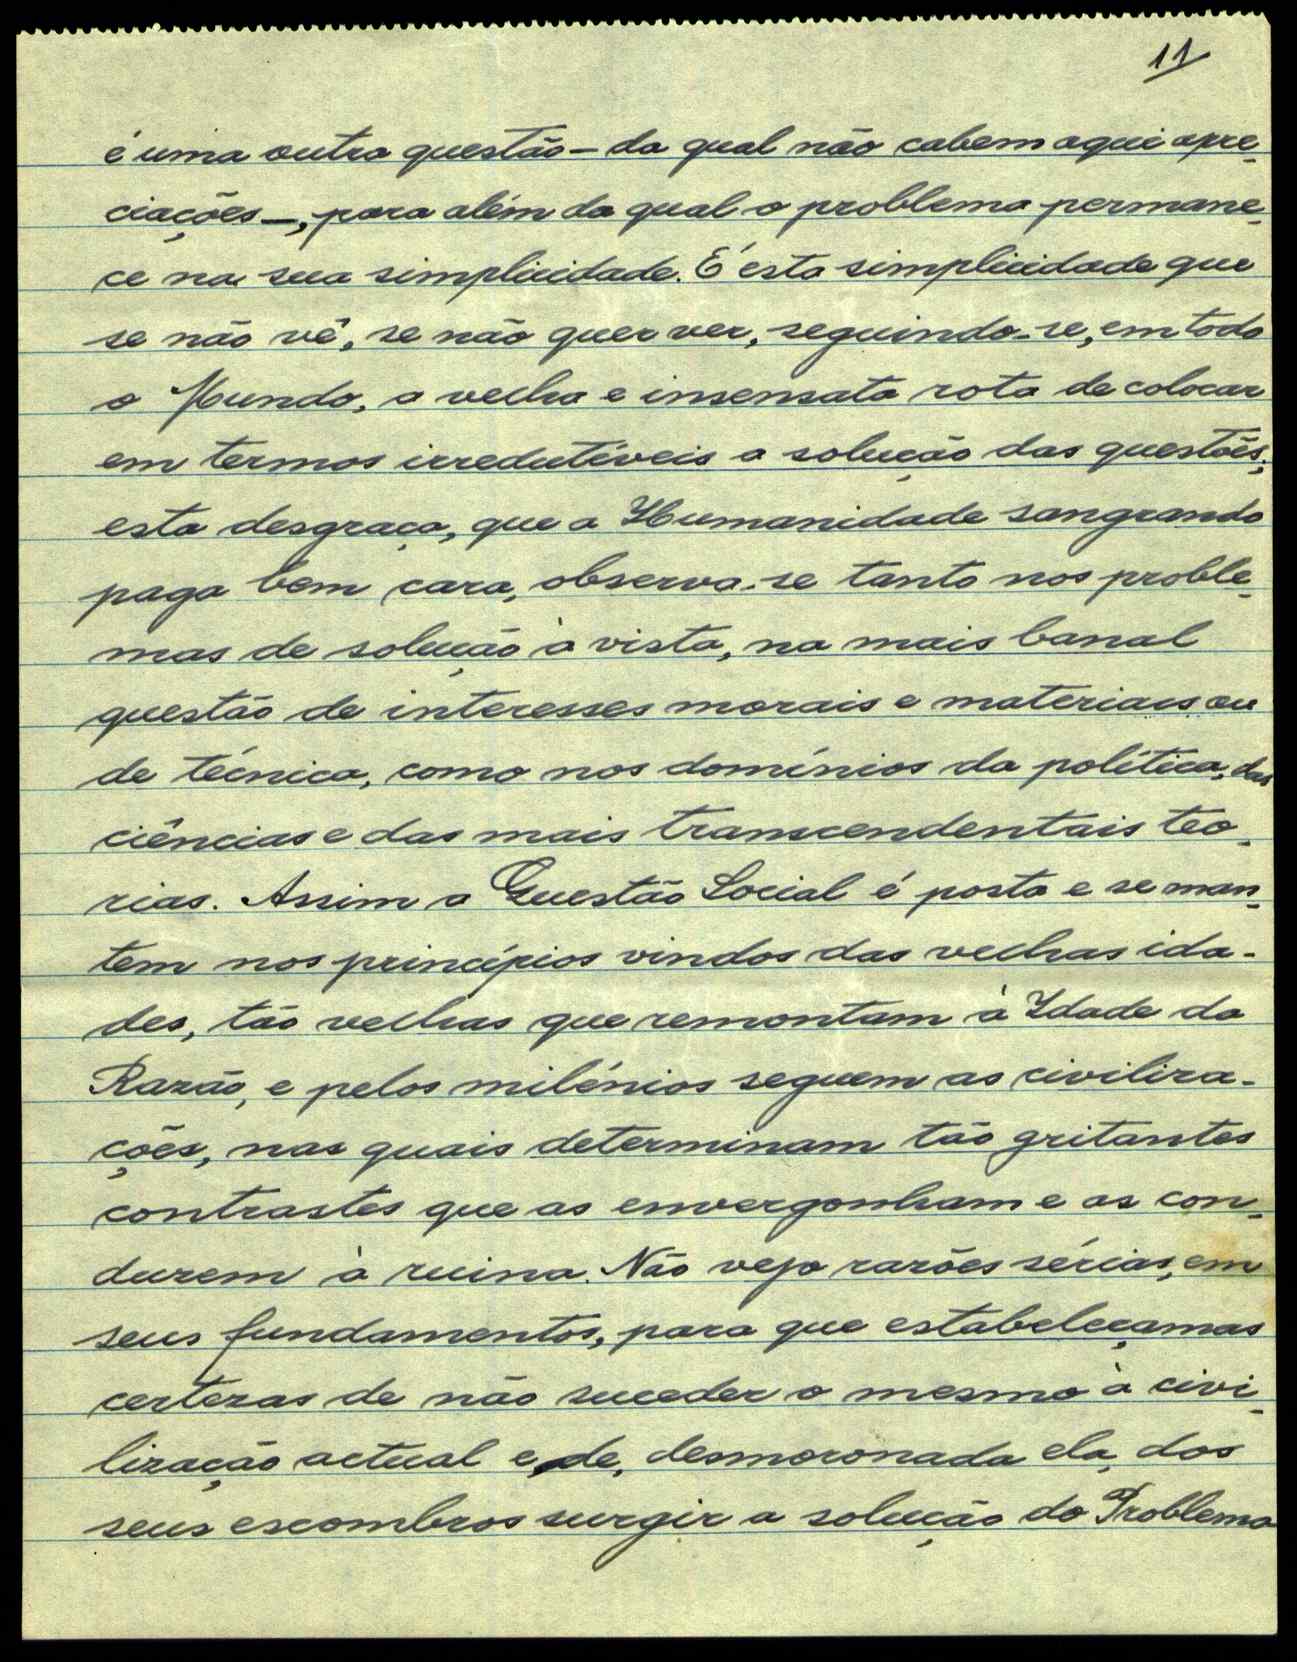 11
é uma outra questão — da qual não cabem aqui apre-
ciações —, para além da qual o problema permane-
ce na sua simplicidade. É esta simplicidade que
se não vê, se não quer ver, seguindo-se, em todo
o Mundo, a velha e insensata rota de colocar
em termos irredutíveis a solução das questões;
esta desgraça, que a Humanidade sangrando
paga bem cara, observa-se tanto nos proble-
mas de solução à vista, na mais banal
questão de interesses morais e materiais ou
de técnica, como nos domínios da política, das
ciências e das mais transcendentais teo-
rias. Assim a Questão Social é posta e se man-
tem nos princípios vindos das velhas ida-
des, tão velhas que remontam à Idade da
Razão, e pelos milénios seguem as civiliza-
ções, nas quais determinam tão gritantes
contrastes que as envergonham e as con-
duzem à ruina. Não vejo razões sérias, em
seus fundamentos, para que estabeleçamos
certezas de não suceder o mesmo à civi-
lização actual e, de, desmoronada ela, dos
seus escombros surgir a solução do Problema